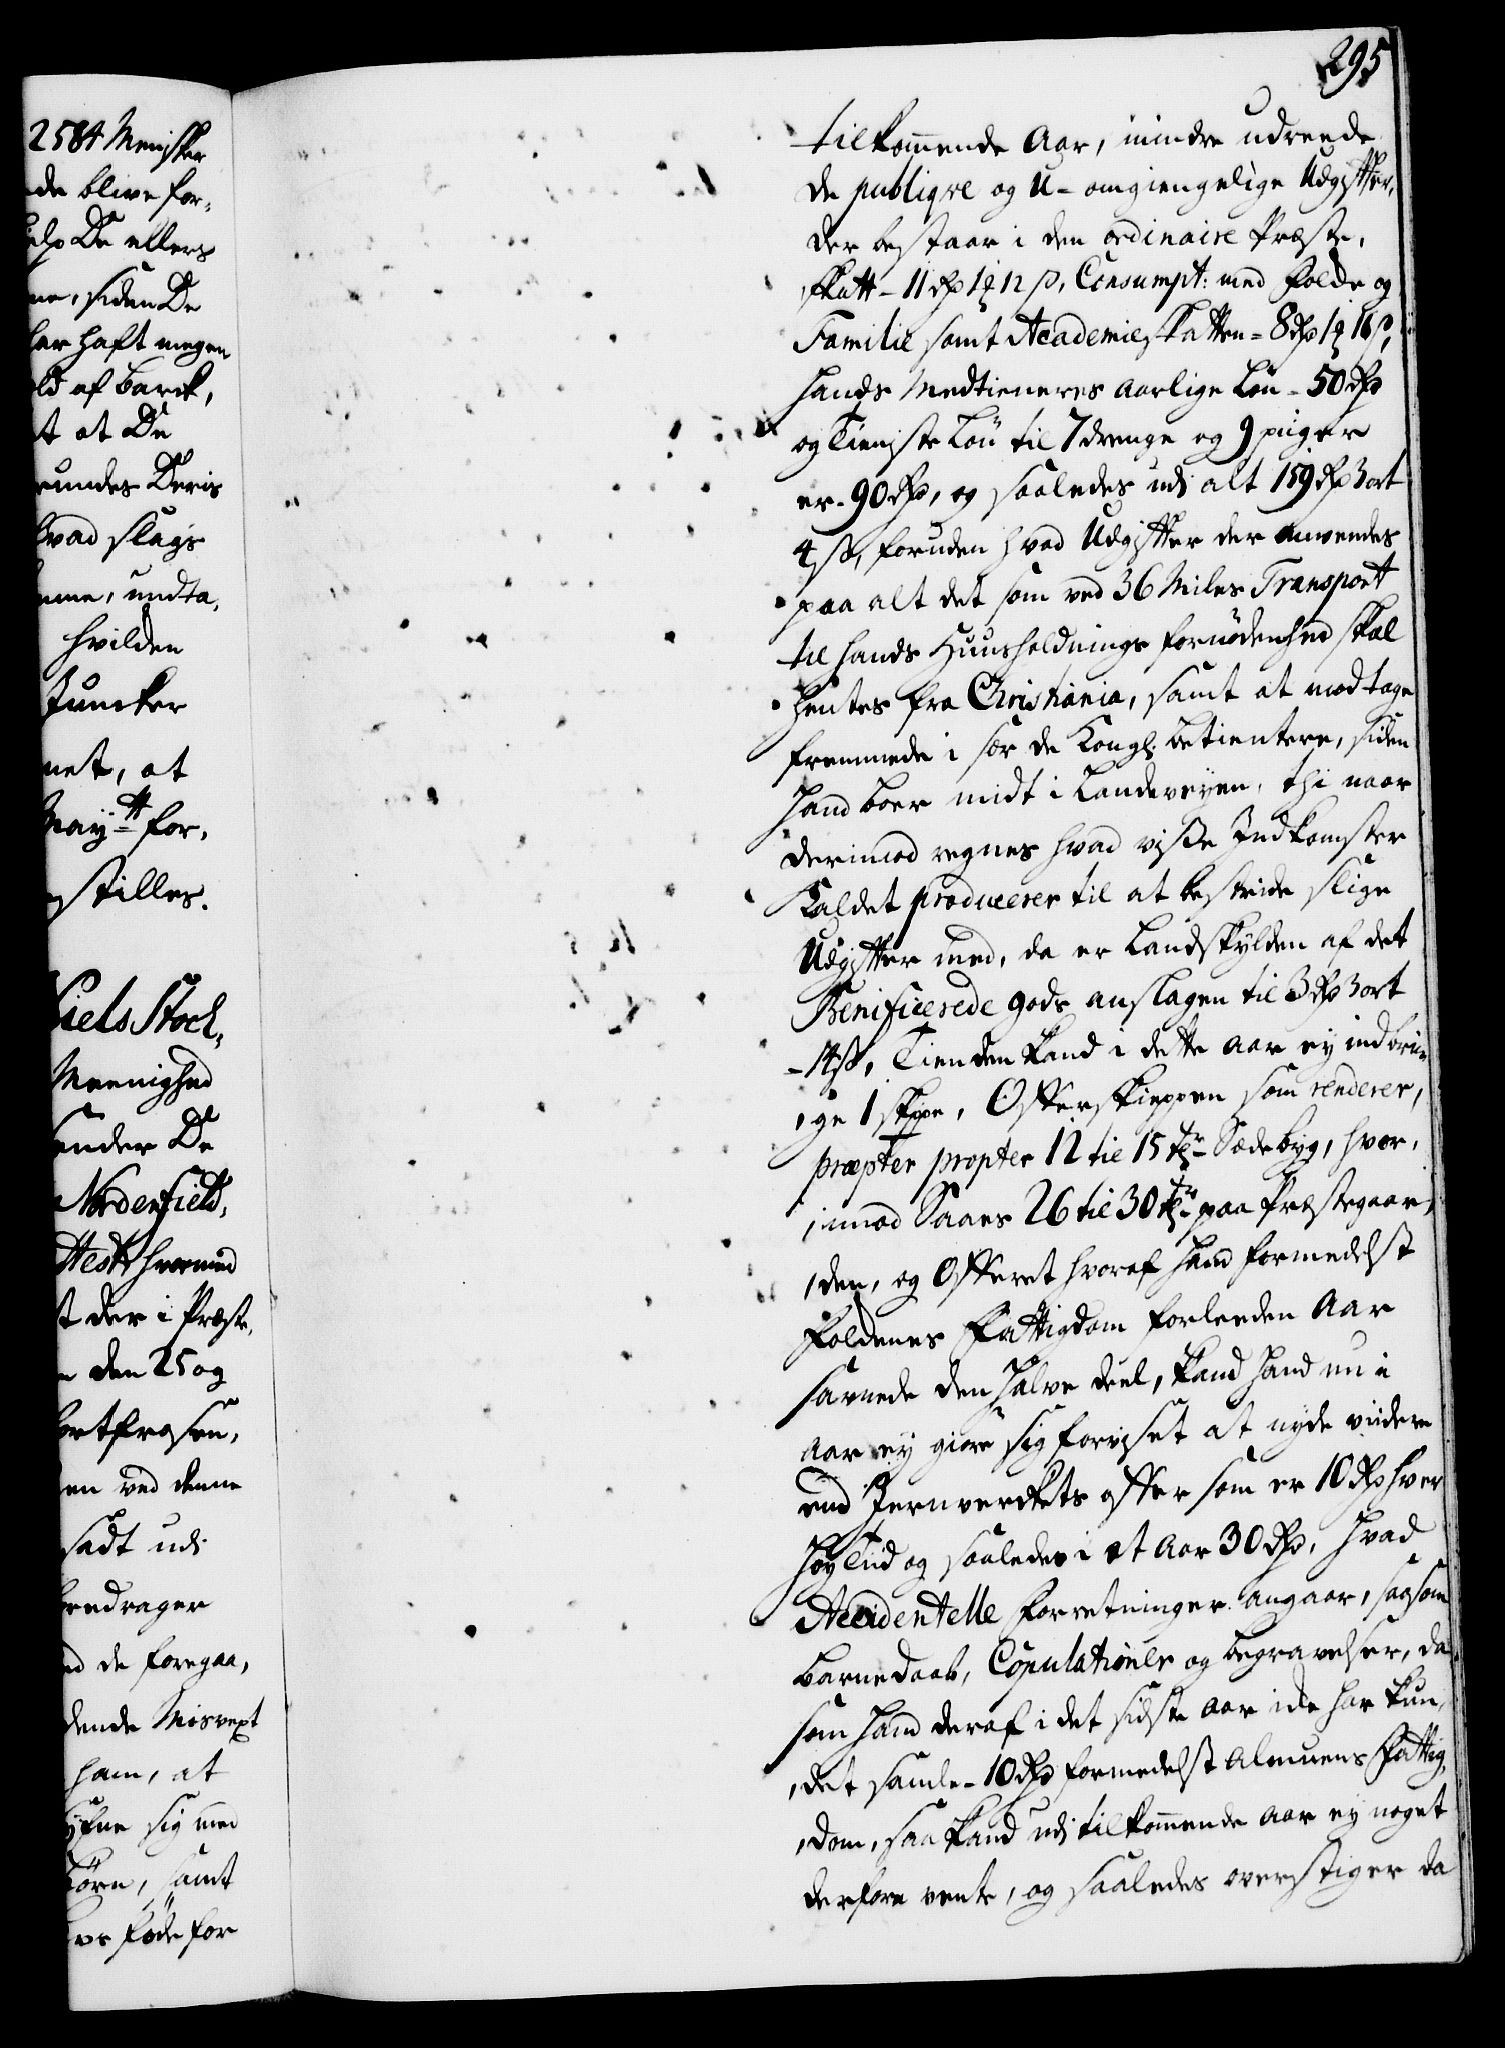 2584 Mennisker
de blive for-
elp De ellers
ne, siden De
har haft megen
ld af barck,
t at De
rundes Deris
hvad slags
nne, undta,
hvilden
Juncker
net, at
May:tt for,
stilles.
Niels Stoch,
Meenighed
ender De
Nordenfield,
Attest hvormed
t der i Præste,
den 25 og
bortfrosen,
en ved denne
sadt udi
bedrager
ed de foregaa,
dende Misvext
ham, at
sig med
børn, samt
føde for
295
tilkom̄ende Aar, mindre udreede
de publiqve og U-omgiengelige Udgiffter,
der bestaar i den ordinaire Præste,
skatt - 11 rd 1 ort 12 ß, Consumpt: med Folk og
Familie samt Academieskatten - 8 rd 1 ort 16 ß,
hands Medtieneres Aarlige Løn - 50 rd
og Tieniste Løn til 7 drenge og 9 piiger
er - 90 rd, og saaledes udi alt 159 rd 3 ort
4 ß, foruden hvad Udgiffter der anvendes
paa alt det som ved 36 Miles Transport
til hands Huusholdnings fornødenhed skal
hentes fra Christiania, samt at modtage
fremmede i sær de Kongl: betientere, siden
hand boer midt i Landeveyen, thi naar
derimod regnes hvad visse Indkomster
Kaldet producerer til at bestride slige
Udgiffter med, da er Landskylden af det
Benificerede gods anslagen til 3 rd 3 ort
- 14 ß, Tienden kand i dette Aar ey indbrin-
,ge 1 skippe, Offerskieppen som renderer,
præpter propter 12 til 15 tr Sædebyg, hvor,
,imod Saaes 26 til 30 tr paa Præstegaar,
,den, og Offeret hvoraf hand formedelst
Folckenes Fattigdom forleeden Aar
savnede den halve deel, kand hand nu i
Aar ey giøre sig forviset at nyde viidere
end Jernverckets offer som er 10 rd hver
høy Tiid og saaledes i et Aar 30 rd, hvad
Accidentelle forretninger angaar, saasom
barnedaab, Copulationer og begravelser, da
som hand deraf i det sidste Aar icke har kun,
,det samle - 10 rd formedelst Almuens Fattig,
,dom, saa kand udi tilkom̄ende Aar ey noget
derfore vente, og saaledes overstiger da